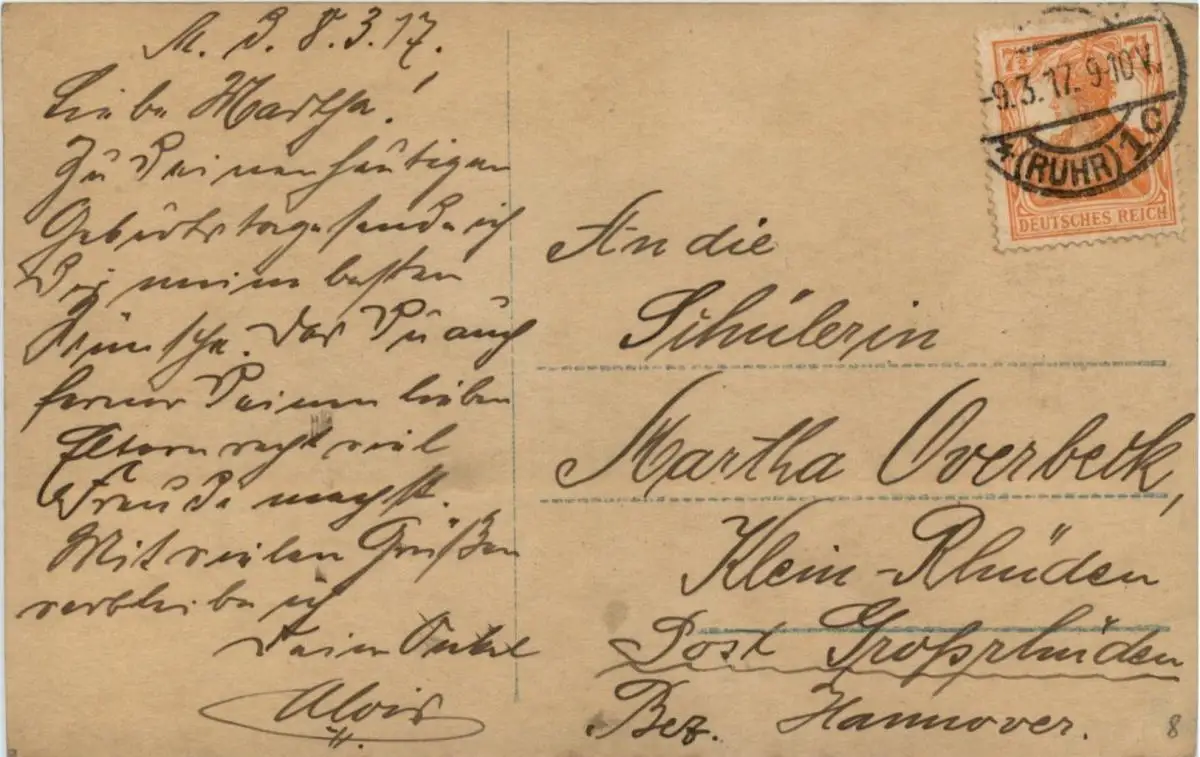 M. D. 8.3.17.
Liebe Martha!
Zu Deinem heutigen
Geburtstage sende ich
Dir meine besten
Wünsche. Das Du auch
ferner Deinen lieben
Eltern recht viel
Freude machst.
Mit vielen Grüßen
verbleibe ich
Dein Onkel
Alois
7½ 7½
-9.3.17. 9-10 V.
* (RUHR) 1c
DEUTSCHES REICH
An die
Schülerin
Martha Overbeck,
Klein-Rhüden
Post Großrhüden
Bez. Hannover.
8